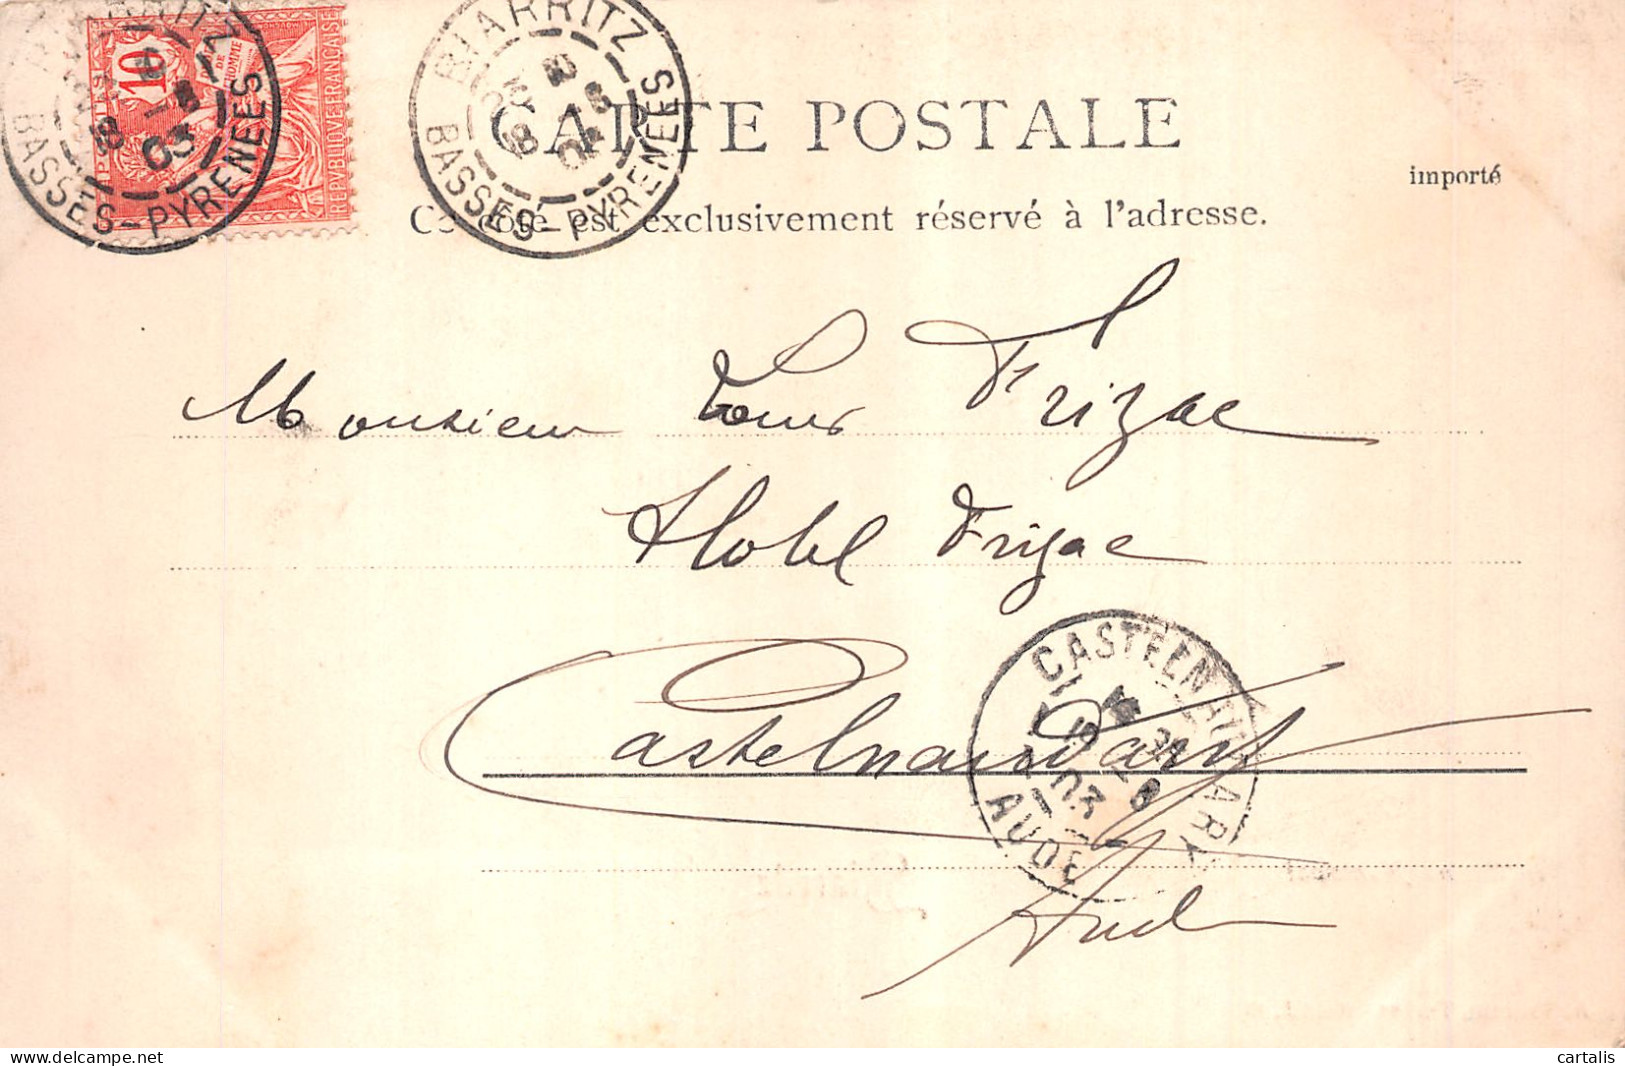 BIARRITZ
BASSES-PYRENEES
18
03
10
DROITS
DE
L'HOMME
REPVBLIQVE FRANÇAISE
BIARRITZ
BASSES-PYRENEES
CARTE POSTALE
importé
Ce côté est exclusivement réservé à l'adresse.
Monsieur Louis Frizac
Hotel Frizac
Castelnaudary
CASTELNAUDARY
AUDE
03
Aude
cartalis